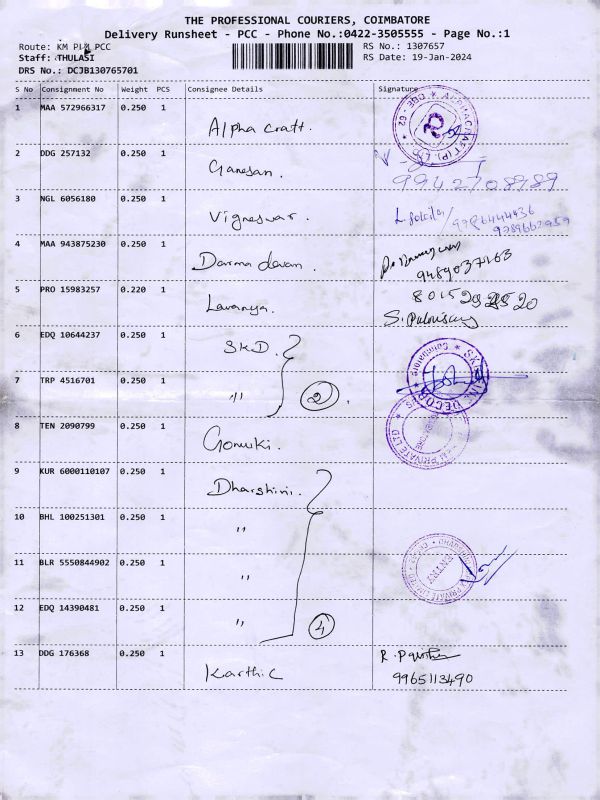 THE PROFESSIONAL COURIERS, COIMBATORE
Delivery Runsheet - PCC - Phone No.:0422-3505555 - Page No.:1
Route: KM PCC
RS No.: 1307657
Staff: THULASI
RS Date: 19-Jan-2024
DRS No.: DCJB130765701
S No Consignment No Weight PCS Consignee Details Signature
1 MAA 572966317 0.250 1 Alpha craft.
2 DDG 257132 0.250 1 Ganesan.
9942708989
3 NGL 6056180 0.250 1 Vigneswar.
4 MAA 943875230 0.250 1 Darma devan.
9489037163
5 PRO 15983257 0.220 1 Lavanya.
6 EDQ 10644237 0.250 1 SKD.
7 TRP 4516701 0.250 1 " 2
8 TEN 2090799 0.250 1 Gomuki.
9 KUR 6000110107 0.250 1 Dharshini.
10 BHL 100251301 0.250 1 "
11 BLR 5550844902 0.250 1 "
12 EDQ 14390481 0.250 1 " 4
13 DDG 176368 0.250 1 Karthic
9965113490